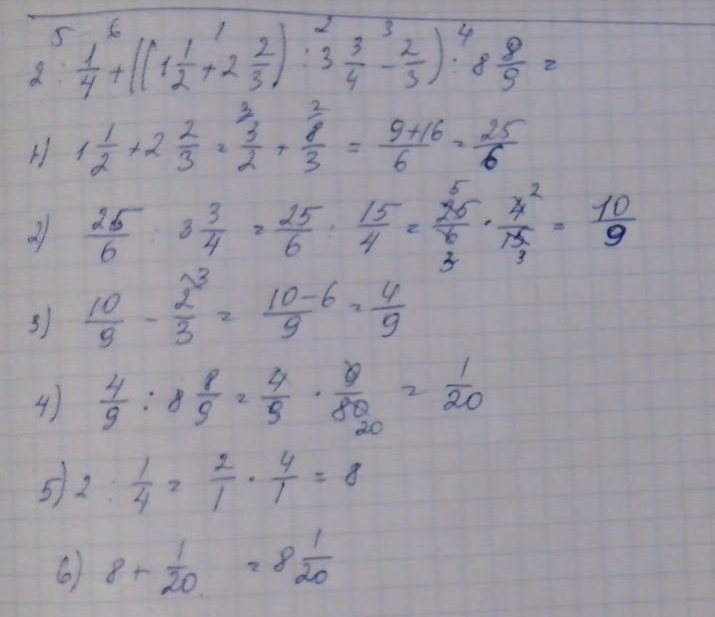 5 6 1 2 3 4
2 : 1/4 + ((1 1/2 + 2 2/3) : 3 3/4 - 2/3) : 8 8/9 =
1) 1 1/2 + 2 2/3 = 3/2 + 8/3 = (9+16)/6 = 25/6
2) 25/6 : 3 3/4 = 25/6 : 15/4 = 25/6 · 4/15 = 10/9
3) 10/9 - 2/3 = (10-6)/9 = 4/9
4) 4/9 : 8 8/9 = 4/9 · 9/80 = 1/20
5) 2 : 1/4 = 2/1 · 4/1 = 8
6) 8 + 1/20 = 8 1/20